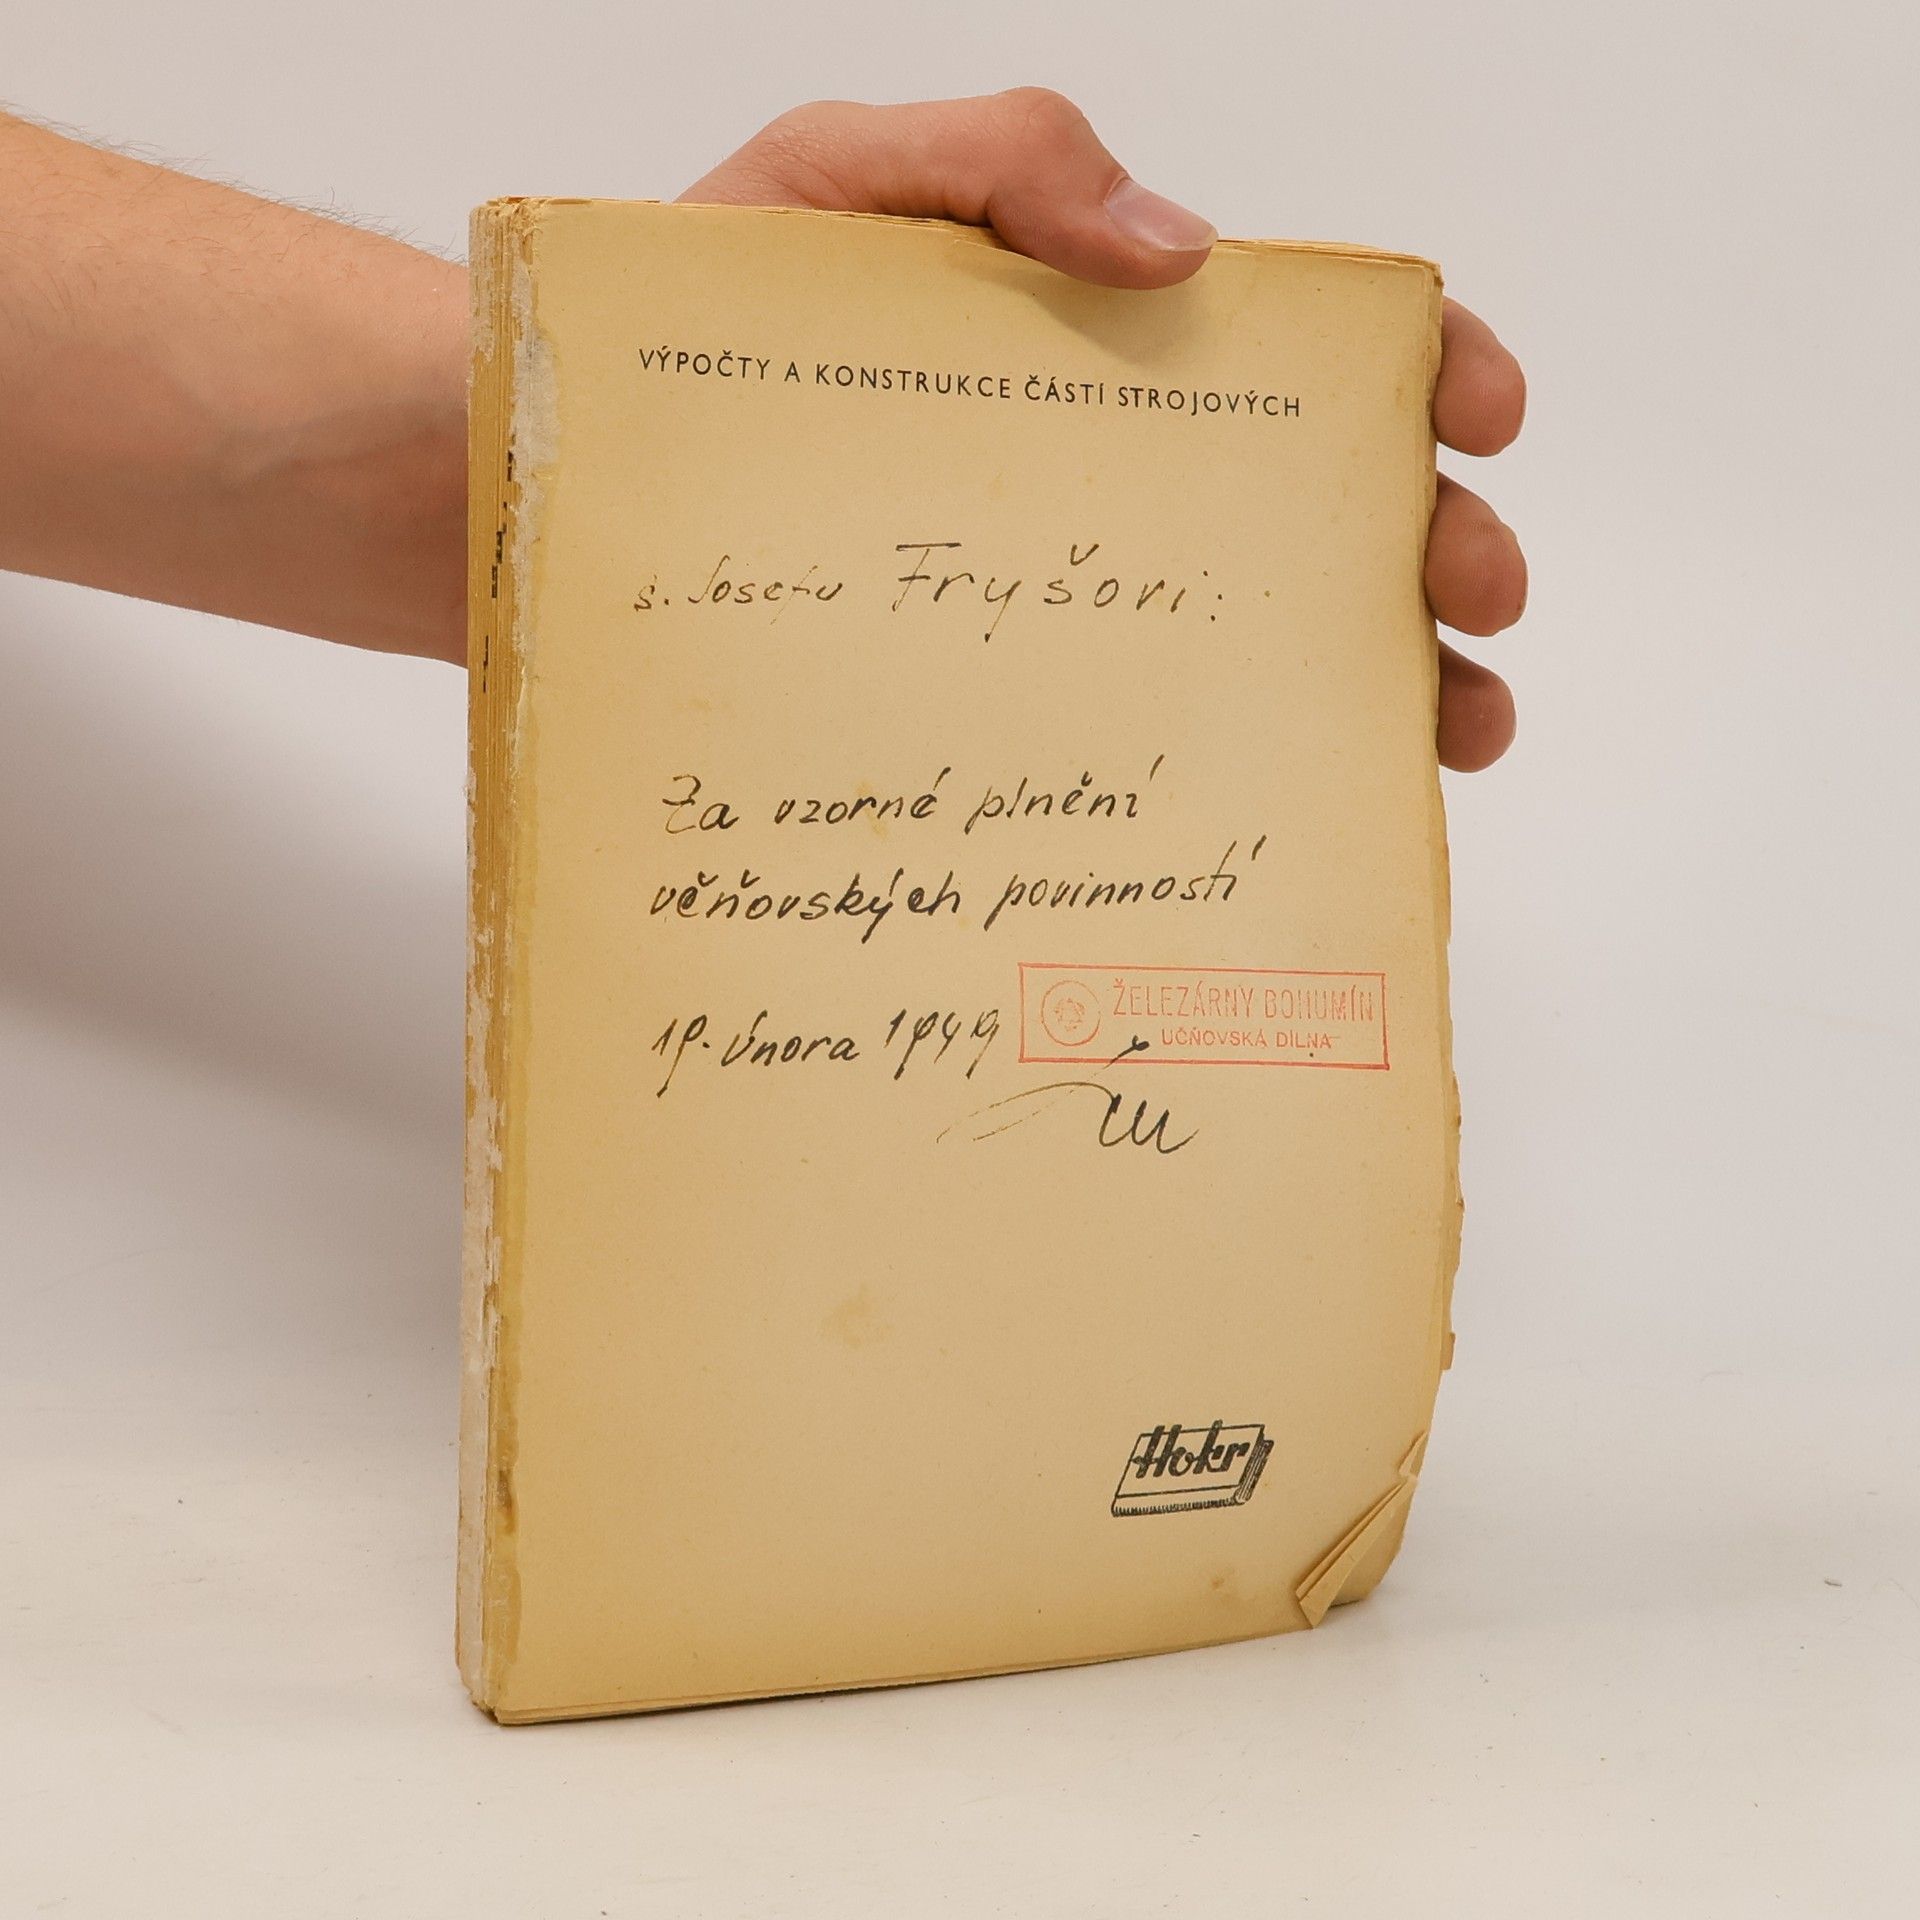 VÝPOČTY A KONSTRUKCE ČÁSTÍ STROJOVÝCH
s. Josefu Fryšovi:
Za vzorné plnění
věňovských povinností
19. února 1949
ŽELEZÁRNY BOHUMÍN
UČŇOVSKÁ DÍLNA
Hokr